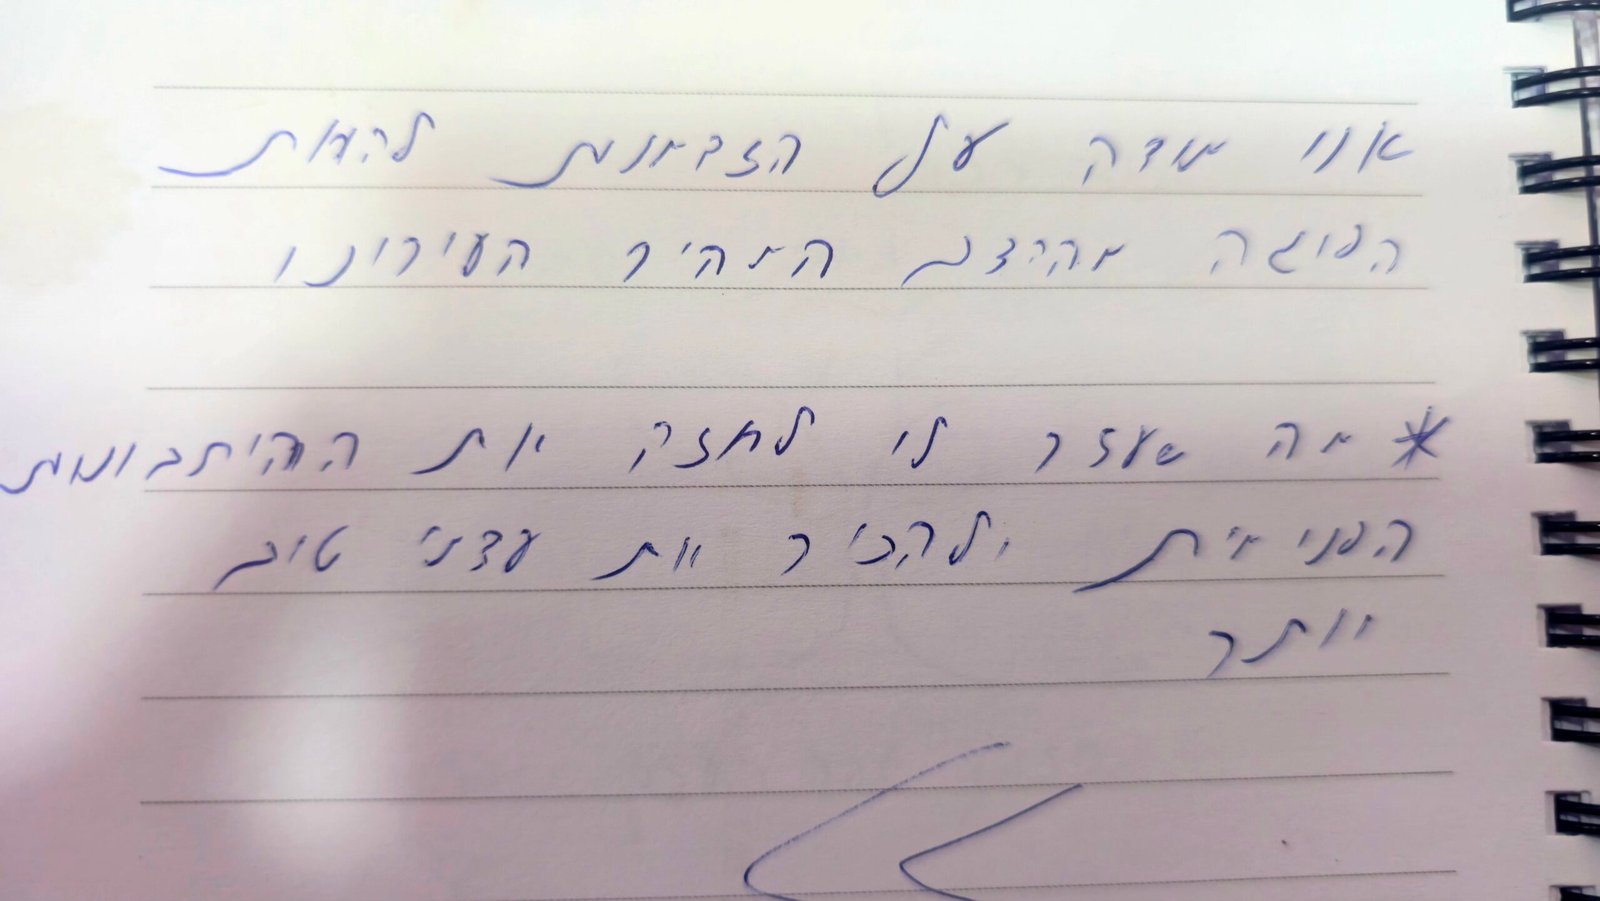 אני מודה על הזדמנות להעות
הפוגה מהקצב המהיר העירוני
*מה שעזר לי לחזק את ההיתבוננות
הפנימית ולהכיר את עצמי טוב
יותר